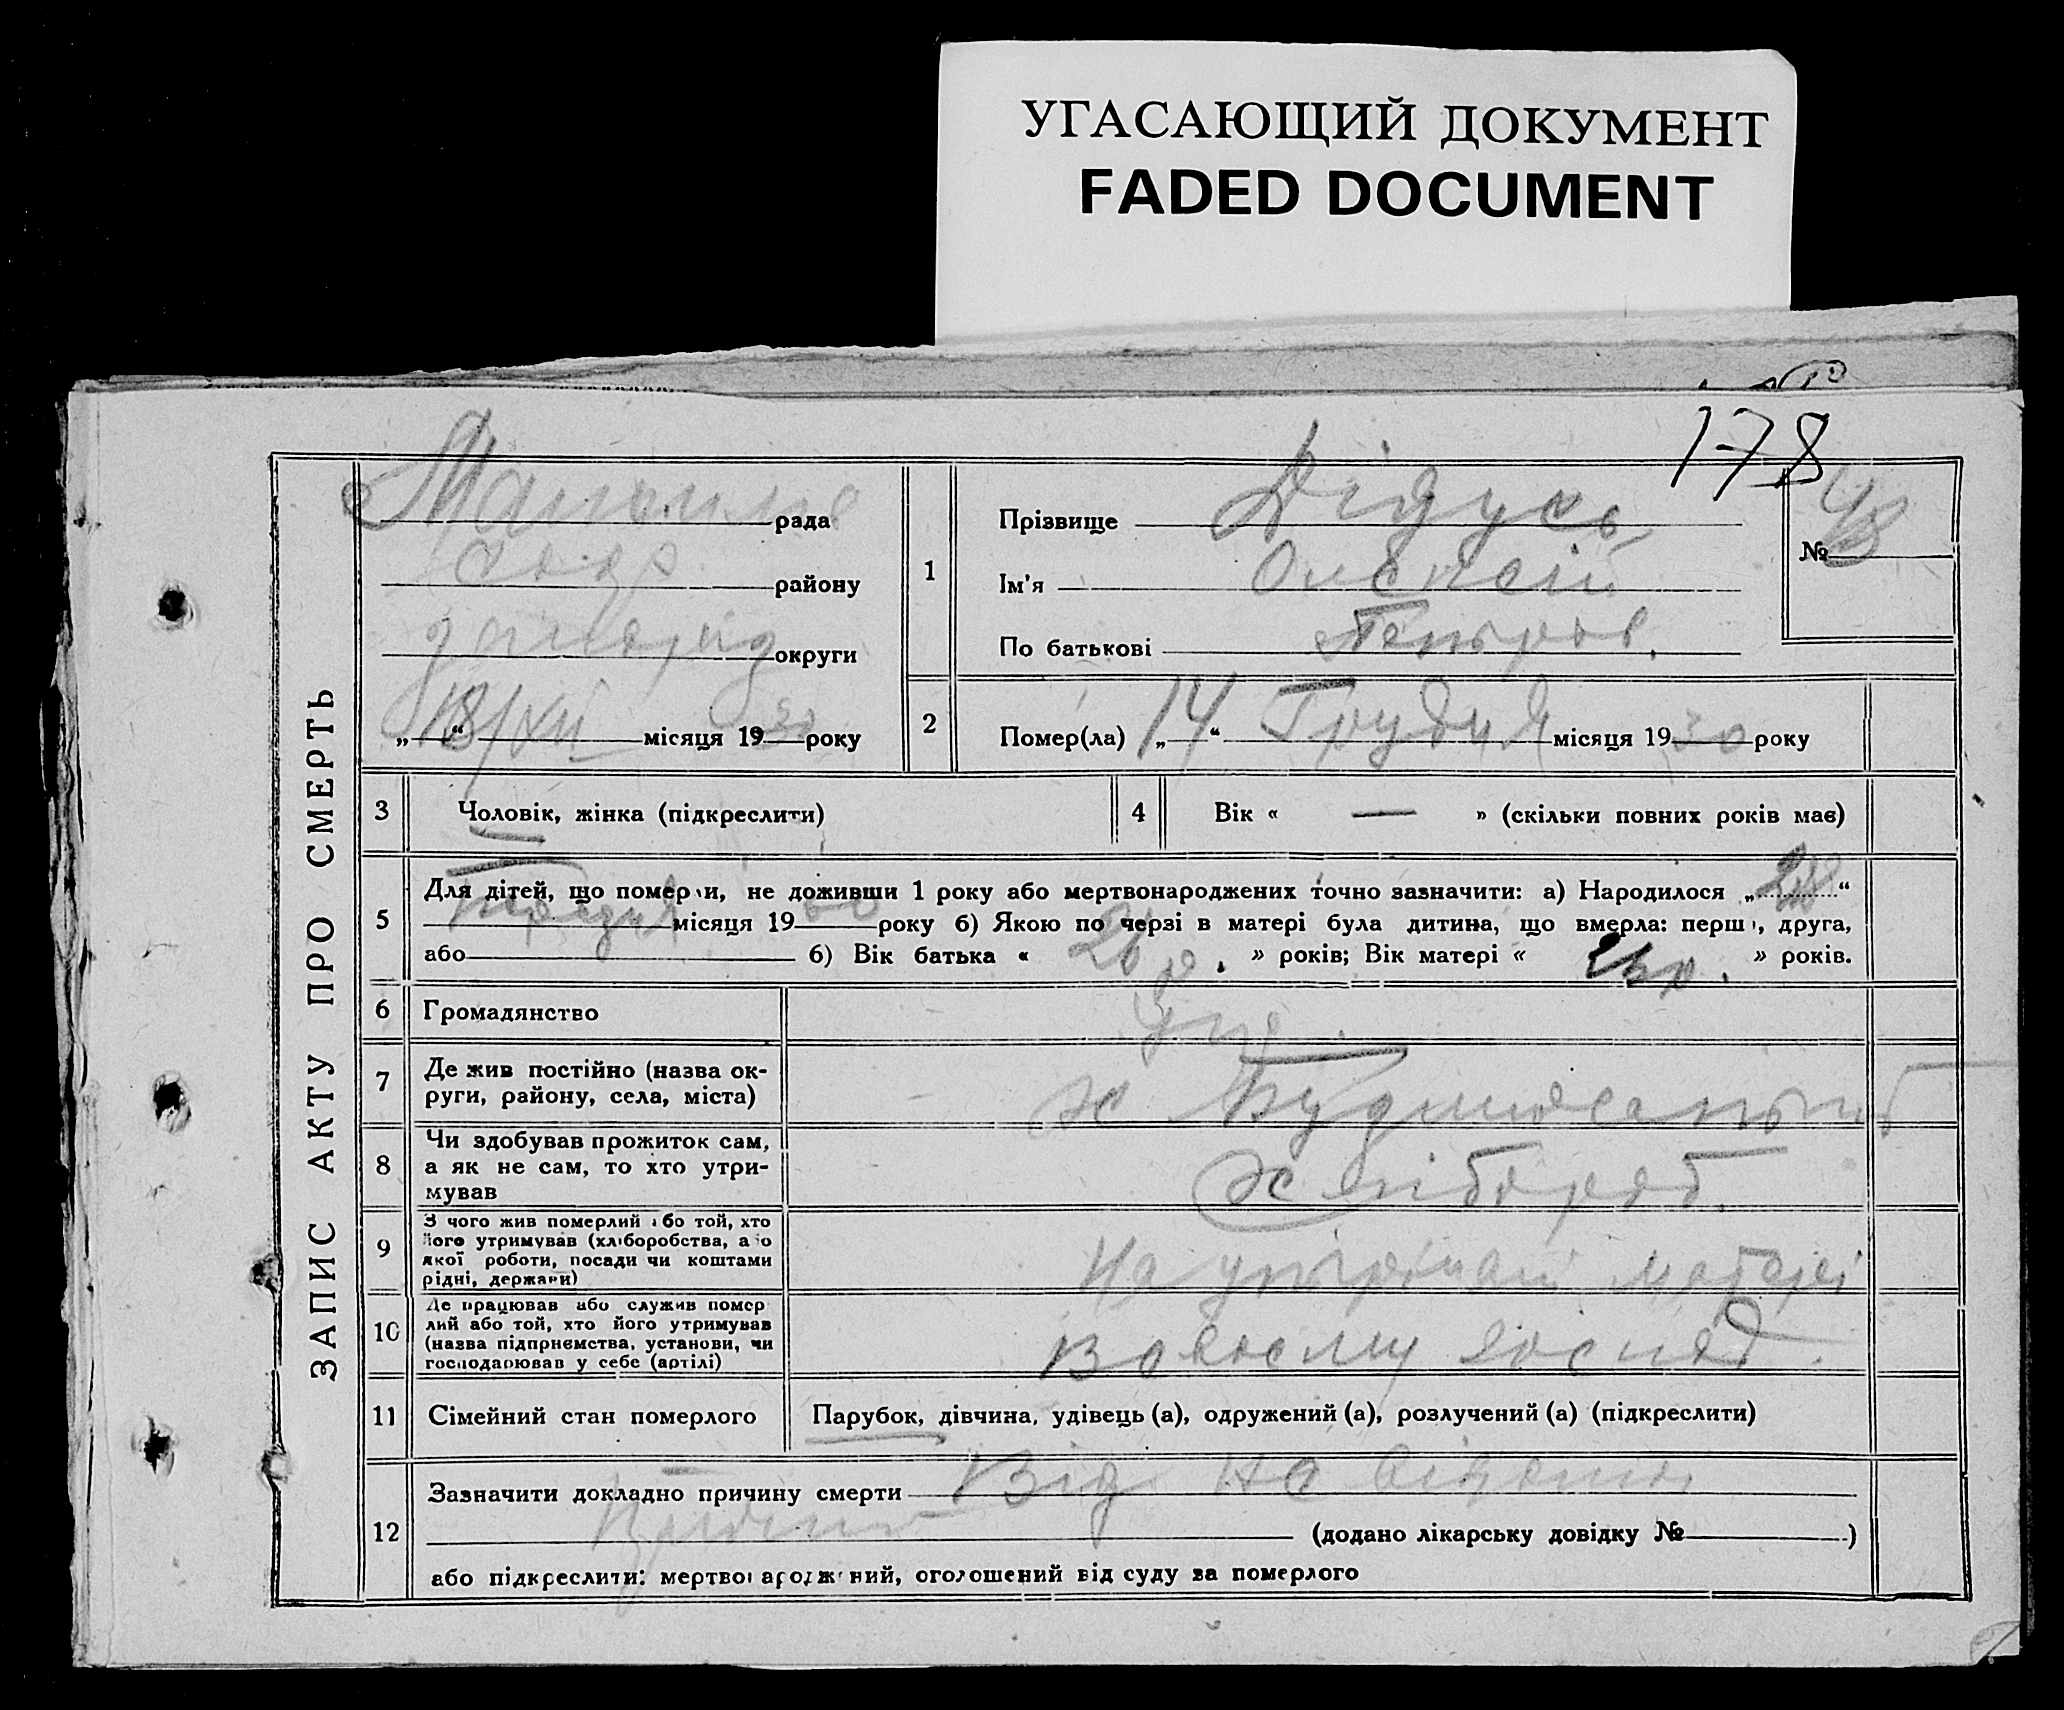 УГАСАЮЩИЙ ДОКУМЕНТ
FADED DOCUMENT
178
ЗАПИС АКТУ ПРО СМЕРТЬ
рада
району
округи
„18/XII“ місяця 1930 року
1
Прізвище Дідусь
Ім'я Олексій
По батькові Петров.
№ 48
2
Помер(ла) „14“ Грудня місяця 1930 року
3 Чоловік, жінка (підкреслити)
4 Вік « — » (скільки повних років має)
5
Для дітей, що померли, не доживши 1 року або мертвонароджених точно зазначити: а) Народилося „ “
місяця 19 року б) Якою по черзі в матері була дитина, що вмерла: перша, друга,
або б) Вік батька « » років; Вік матері « » років.
6 Громадянство Укр.
7
Де жив постійно (назва ок-
руги, району, села, міста)
х
8
Чи здобував прожиток сам,
а як не сам, то хто утри-
мував
Хлібороб.
9
З чого жив померлий або той, хто
його утримував (хліборобства, або
якої роботи, посади чи коштами
рідні, держави)
На матері
10
Де працював або служив помер
лий або той, хто його утримував
(назва підприємства, установи, чи
господарював у себе (артілі)
В своєму господ.
11 Сімейний стан померлого Парубок, дівчина, удівець (а), одружений (а), розлучений (а) (підкреслити)
12
Зазначити докладно причину смерти Від
(додано лікарську довідку № )
або підкреслити: мертвонароджений, оголошений від суду за померлого